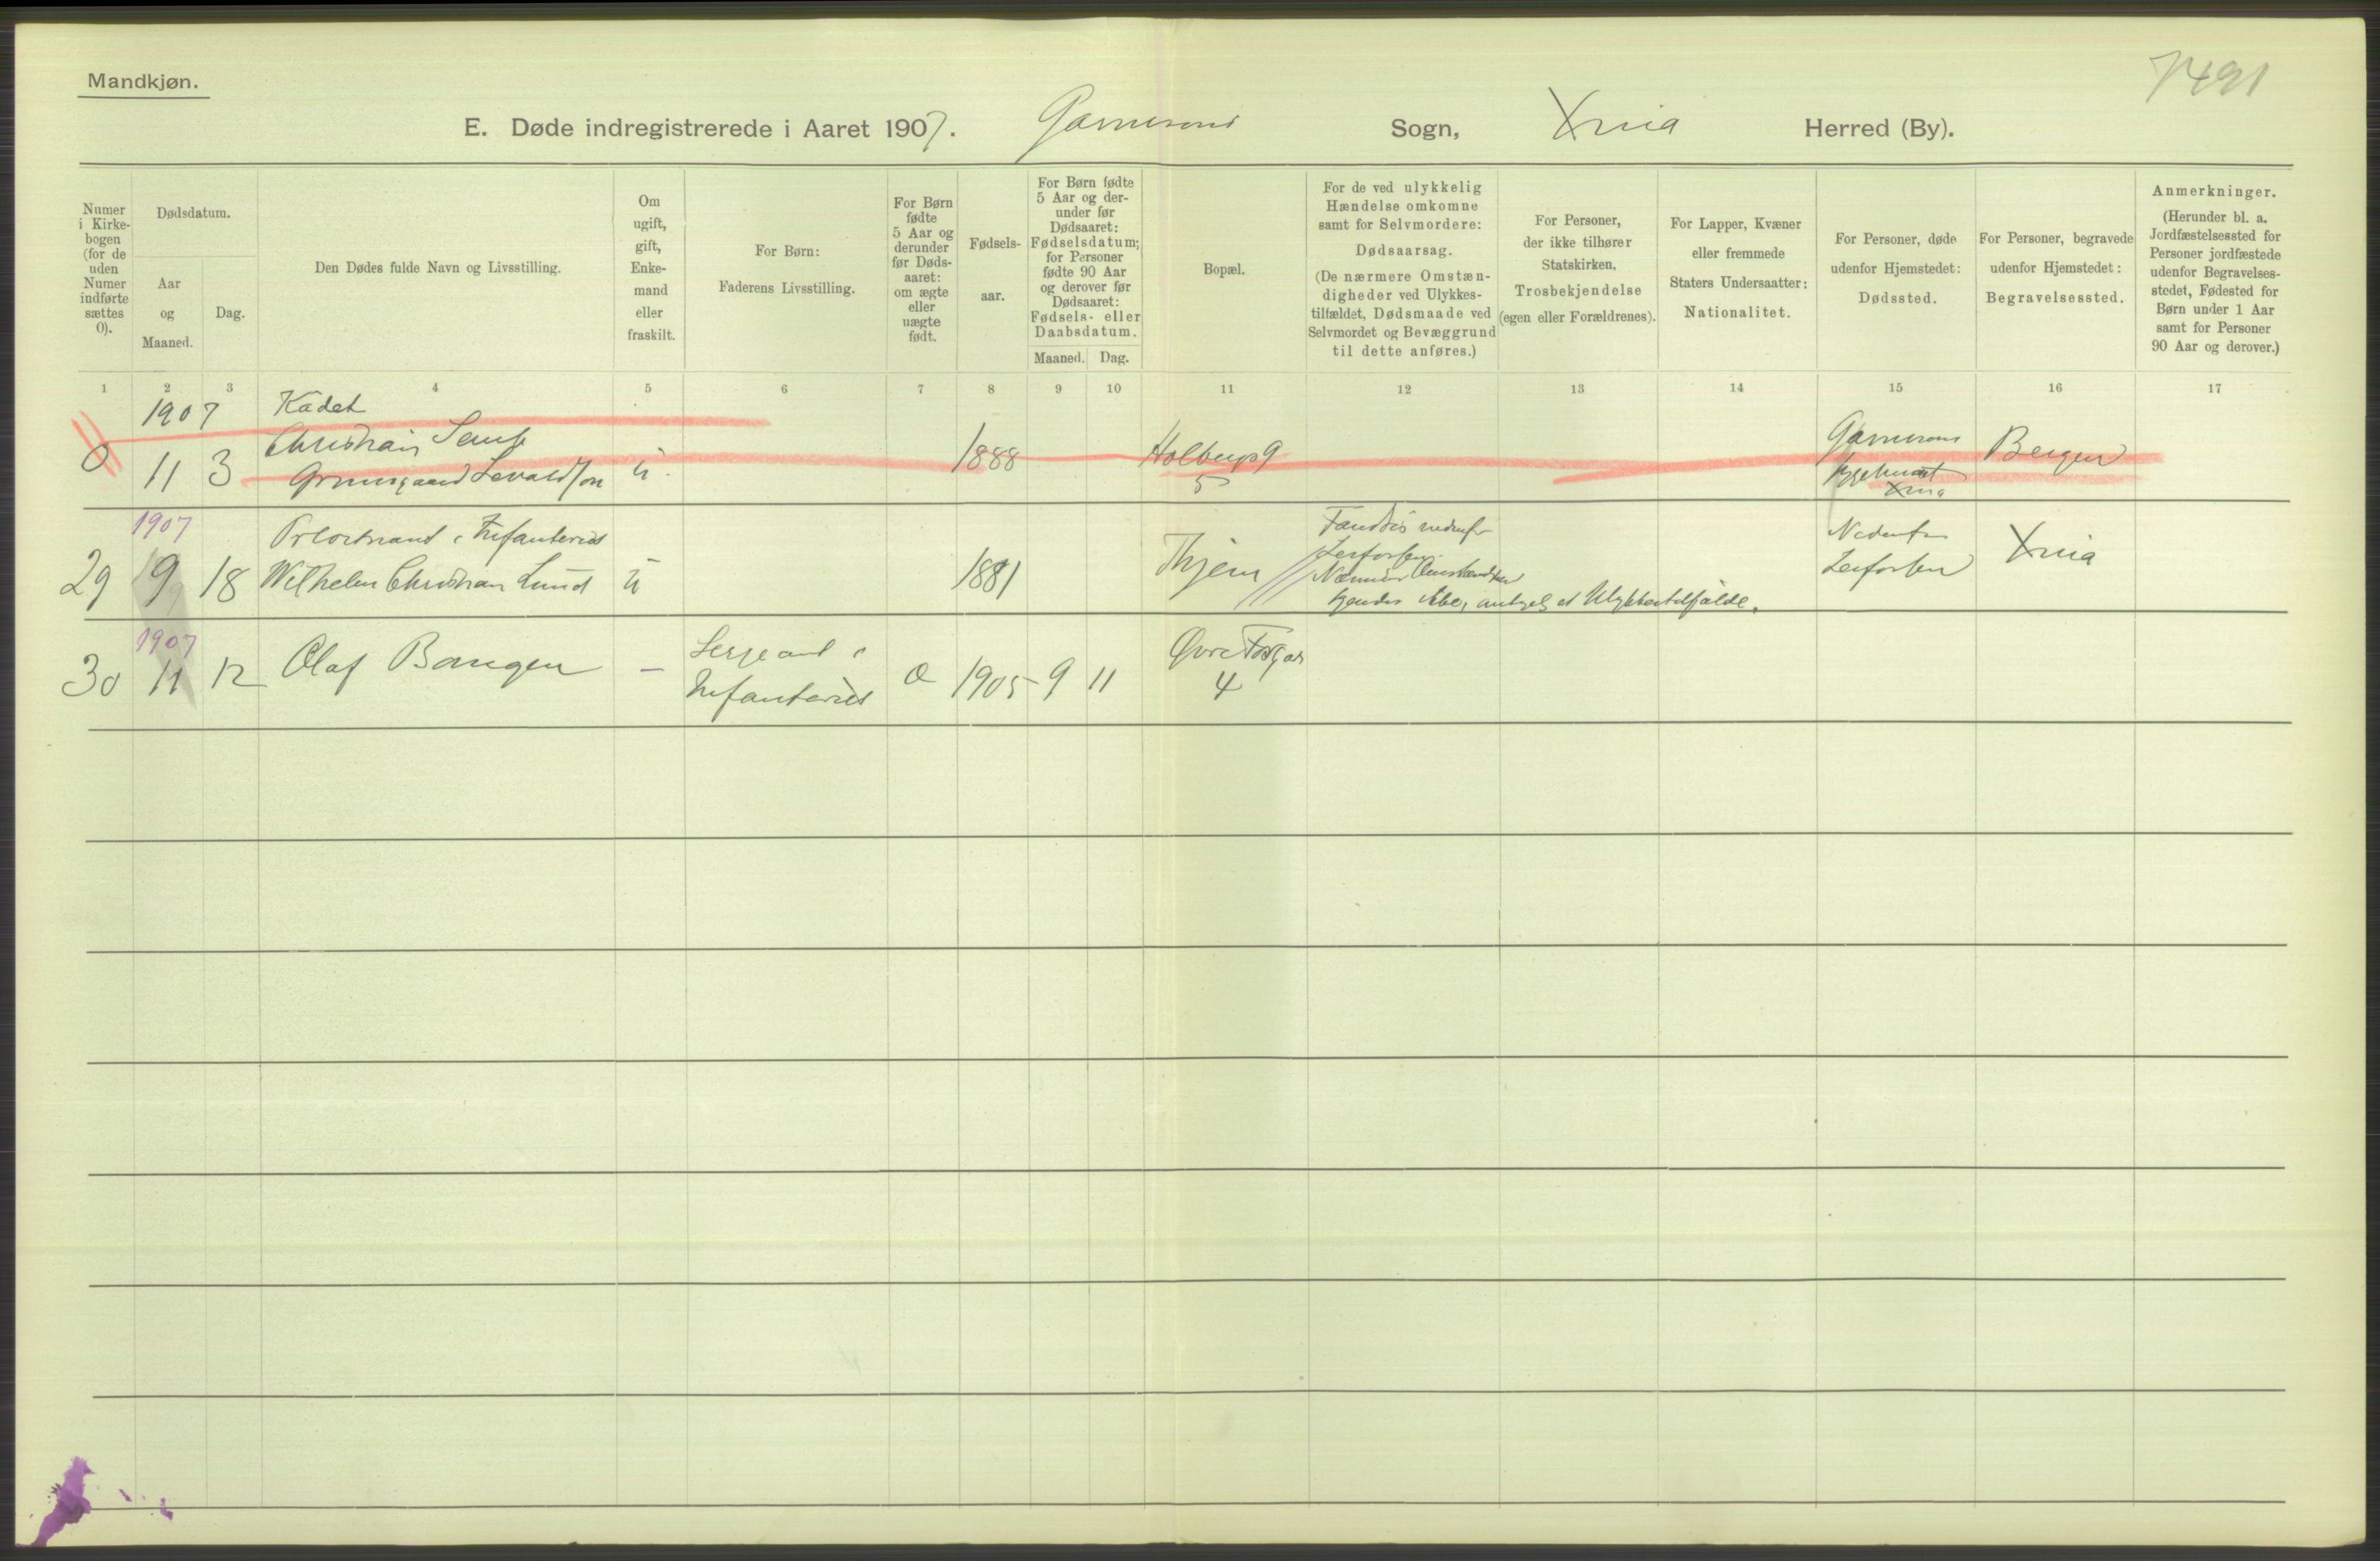 Mandkjøn.
7491
E. Døde indregistrerede i Aaret 1907. Garnisons Sogn, Xnia Herred (By).
Numer
i Kirke-
bogen
(for de
uden
Numer
indførte
sættes
0).
Dødsdatum.
Aar
og
Maaned.
Dag.
Den Dødes fulde Navn og Livsstilling.
Om
ugift,
gift,
Enke-
mand
eller
fraskilt.
For Børn:
Faderens Livsstilling.
For Børn
fødte
5 Aar og
derunder
før Døds-
aaret:
om ægte
eller
uægte
født.
Fødsels-
aar.
For Børn fødte
5 Aar og der-
under før
Dødsaaret:
Fødselsdatum;
for Personer
fødte 90 Aar
og derover før
Dødsaaret:
Fødsels- eller
Daabsdatum.
Maaned. Dag.
Bopæl.
For de ved ulykkelig
Hændelse omkomne
samt for Selvmordere:
Dødsaarsag.
(De nærmere Omstæn-
digheder ved Ulykkes-
tilfældet, Dødsmaade ved
Selvmordet og Bevæggrund
til dette anføres.)
For Personer,
der ikke tilhører
Statskirken,
Trosbekjendelse
(egen eller Forældrenes).
For Lapper, Kvæner
eller fremmede
Staters Undersaatter:
Nationalitet.
For Personer, døde
udenfor Hjemstedet:
Dødssted.
For Personer, begravede
udenfor Hjemstedet:
Begravelsessted.
Anmerkninger.
(Herunder bl. a.
Jordfæstelsessted for
Personer jordfæstede
udenfor Begravelses-
stedet, Fødested for
Børn under 1 Aar
samt for Personer
90 Aar og derover.)
1 2 3 4 5 6 7 8 9 10 11 12 13 14 15 16 17
1907
Kadet
Christian
0 11 3
u
1888
Holbergs
5
Garnisons
Sygehuset
Xnia
Bergen
1907
Prløitnant i Infanteriet
29 9 18 Wilhelm Christian Lund u
1881
Thjem
Fandtes nedenfor
Leirfossen
Nærmere Omstændigheder
kjendes ikke, antagelig et Ulykkestilfælde.
Nedenfor
Leirfossen
Xnia
1907
30 11 12 Olaf Bangen —
Sergeant i
Infanteriet
1905 9 11
Øvre
4